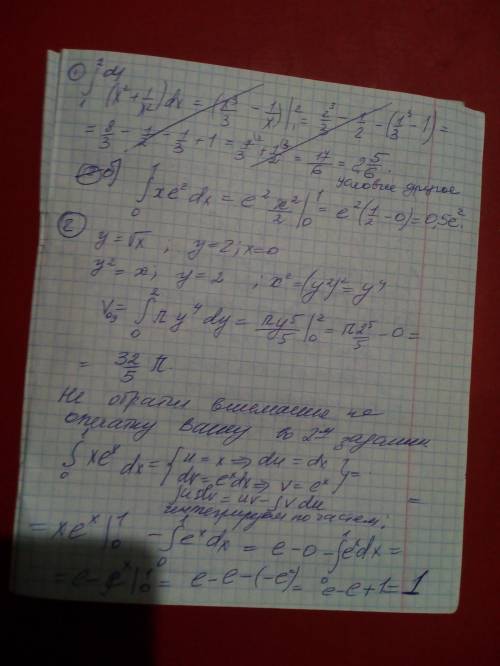 ① а) ∫₁² (x² + 1/x²)dx = (x³/3 - 1/x)|₁² = 2³/3 - 1/2 - (1³/3 - 1) =
= 8/3 - 1/2 - 1/3 + 1 = 7/3 + 1/2 = 17/6 = 2 5/6.
условие другое
б) ∫₀¹ xe² dx = e² x²/2 |₀¹ = e²(1/2 - 0) = 0,5e².
② y = √x , y = 2; x = 0
y² = x; y = 2 ; x² = (y²)² = y⁴
V = ∫₀² π y⁴ dy = πy⁵/5 |₀² = π 2⁵/5 - 0 =
= 32/5 π.
Не обратил внимание на
опечатку Вашу во 2-м задании
∫₀¹ xeˣ dx = {u = x ⇒ du = dx
dv = eˣdx ⇒ v = eˣ} =
∫udv = uv - ∫v du
интегрируем по частям; =
= xeˣ|₀¹ - ∫₀¹ eˣ dx = e - 0 - ∫₀¹ eˣdx =
= e - eˣ|₀¹ = e - e - (-e⁰) = e - e + 1 = 1